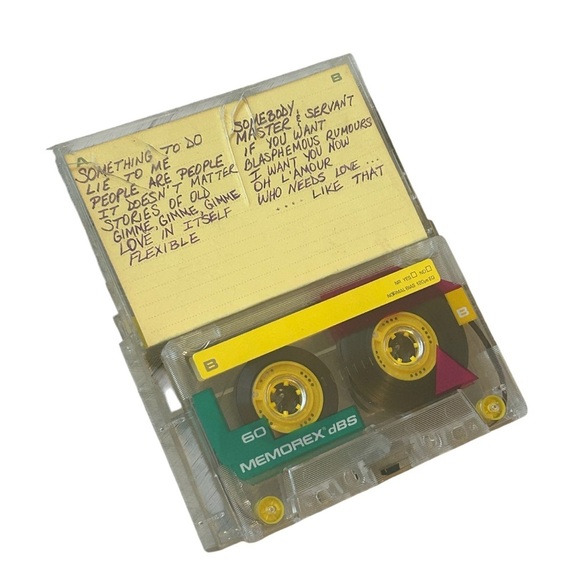 B
SOMETHING TO DO
LIE TO ME
PEOPLE ARE PEOPLE
IT DOESN'T MATTER
STORIES OF OLD
GIMME, GIMME, GIMME
LOVE IN ITSELF
FLEXIBLE
SOMEBODY
MASTER & SERVANT
IF YOU WANT
BLASPHEMOUS RUMOURS
I WANT YOU NOW
OH L'AMOUR
WHO NEEDS LOVE ...
.... LIKE THAT
B
B
60
MEMOREX dBS